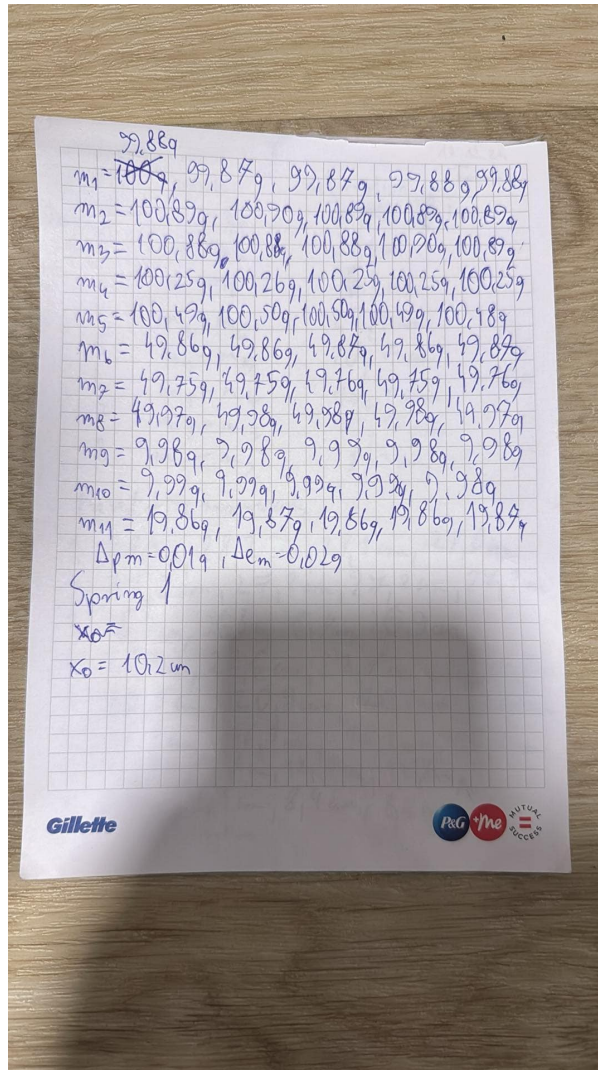 99,88g
m1=100g, 99,87g, 99,87g, 99,88g, 99,88g
m2=100,89g, 100,90g, 100,89g, 100,89g, 100,89g
m3=100,88g, 100,88g, 100,88g, 100,90g, 100,89g
m4=100,25g, 100,26g, 100,25g, 100,25g, 100,25g
m5=100,49g, 100,50g, 100,50g, 100,49g, 100,48g
m6=49,86g, 49,86g, 49,87g, 49,86g, 49,89g
m7=49,75g, 49,75g, 49,76g, 49,75g, 49,76g
m8=49,97g, 49,98g, 49,98g, 49,98g, 49,97g
m9=9,98g, 9,98g, 9,99g, 9,98g, 9,98g
m10=9,99g, 9,99g, 9,99g, 9,99g, 9,98g
m11=19,86g, 19,87g, 19,86g, 19,86g, 19,87g
Δpm=0,01g, Δem=0,02g
Spring 1
x0=
x0=10,2cm
Gillette
P&G +Me MUTUAL SUCCESS